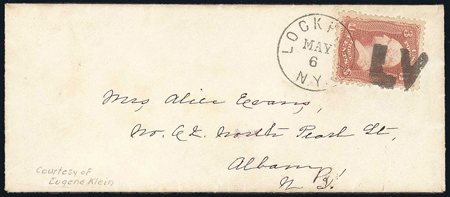 LOCKP
MAY
6
N.Y.
LV
Mrs Alice Evans,
No. 62 North Pearl St,
Albany
N. Y.
Courtesy of
Eugene Klein